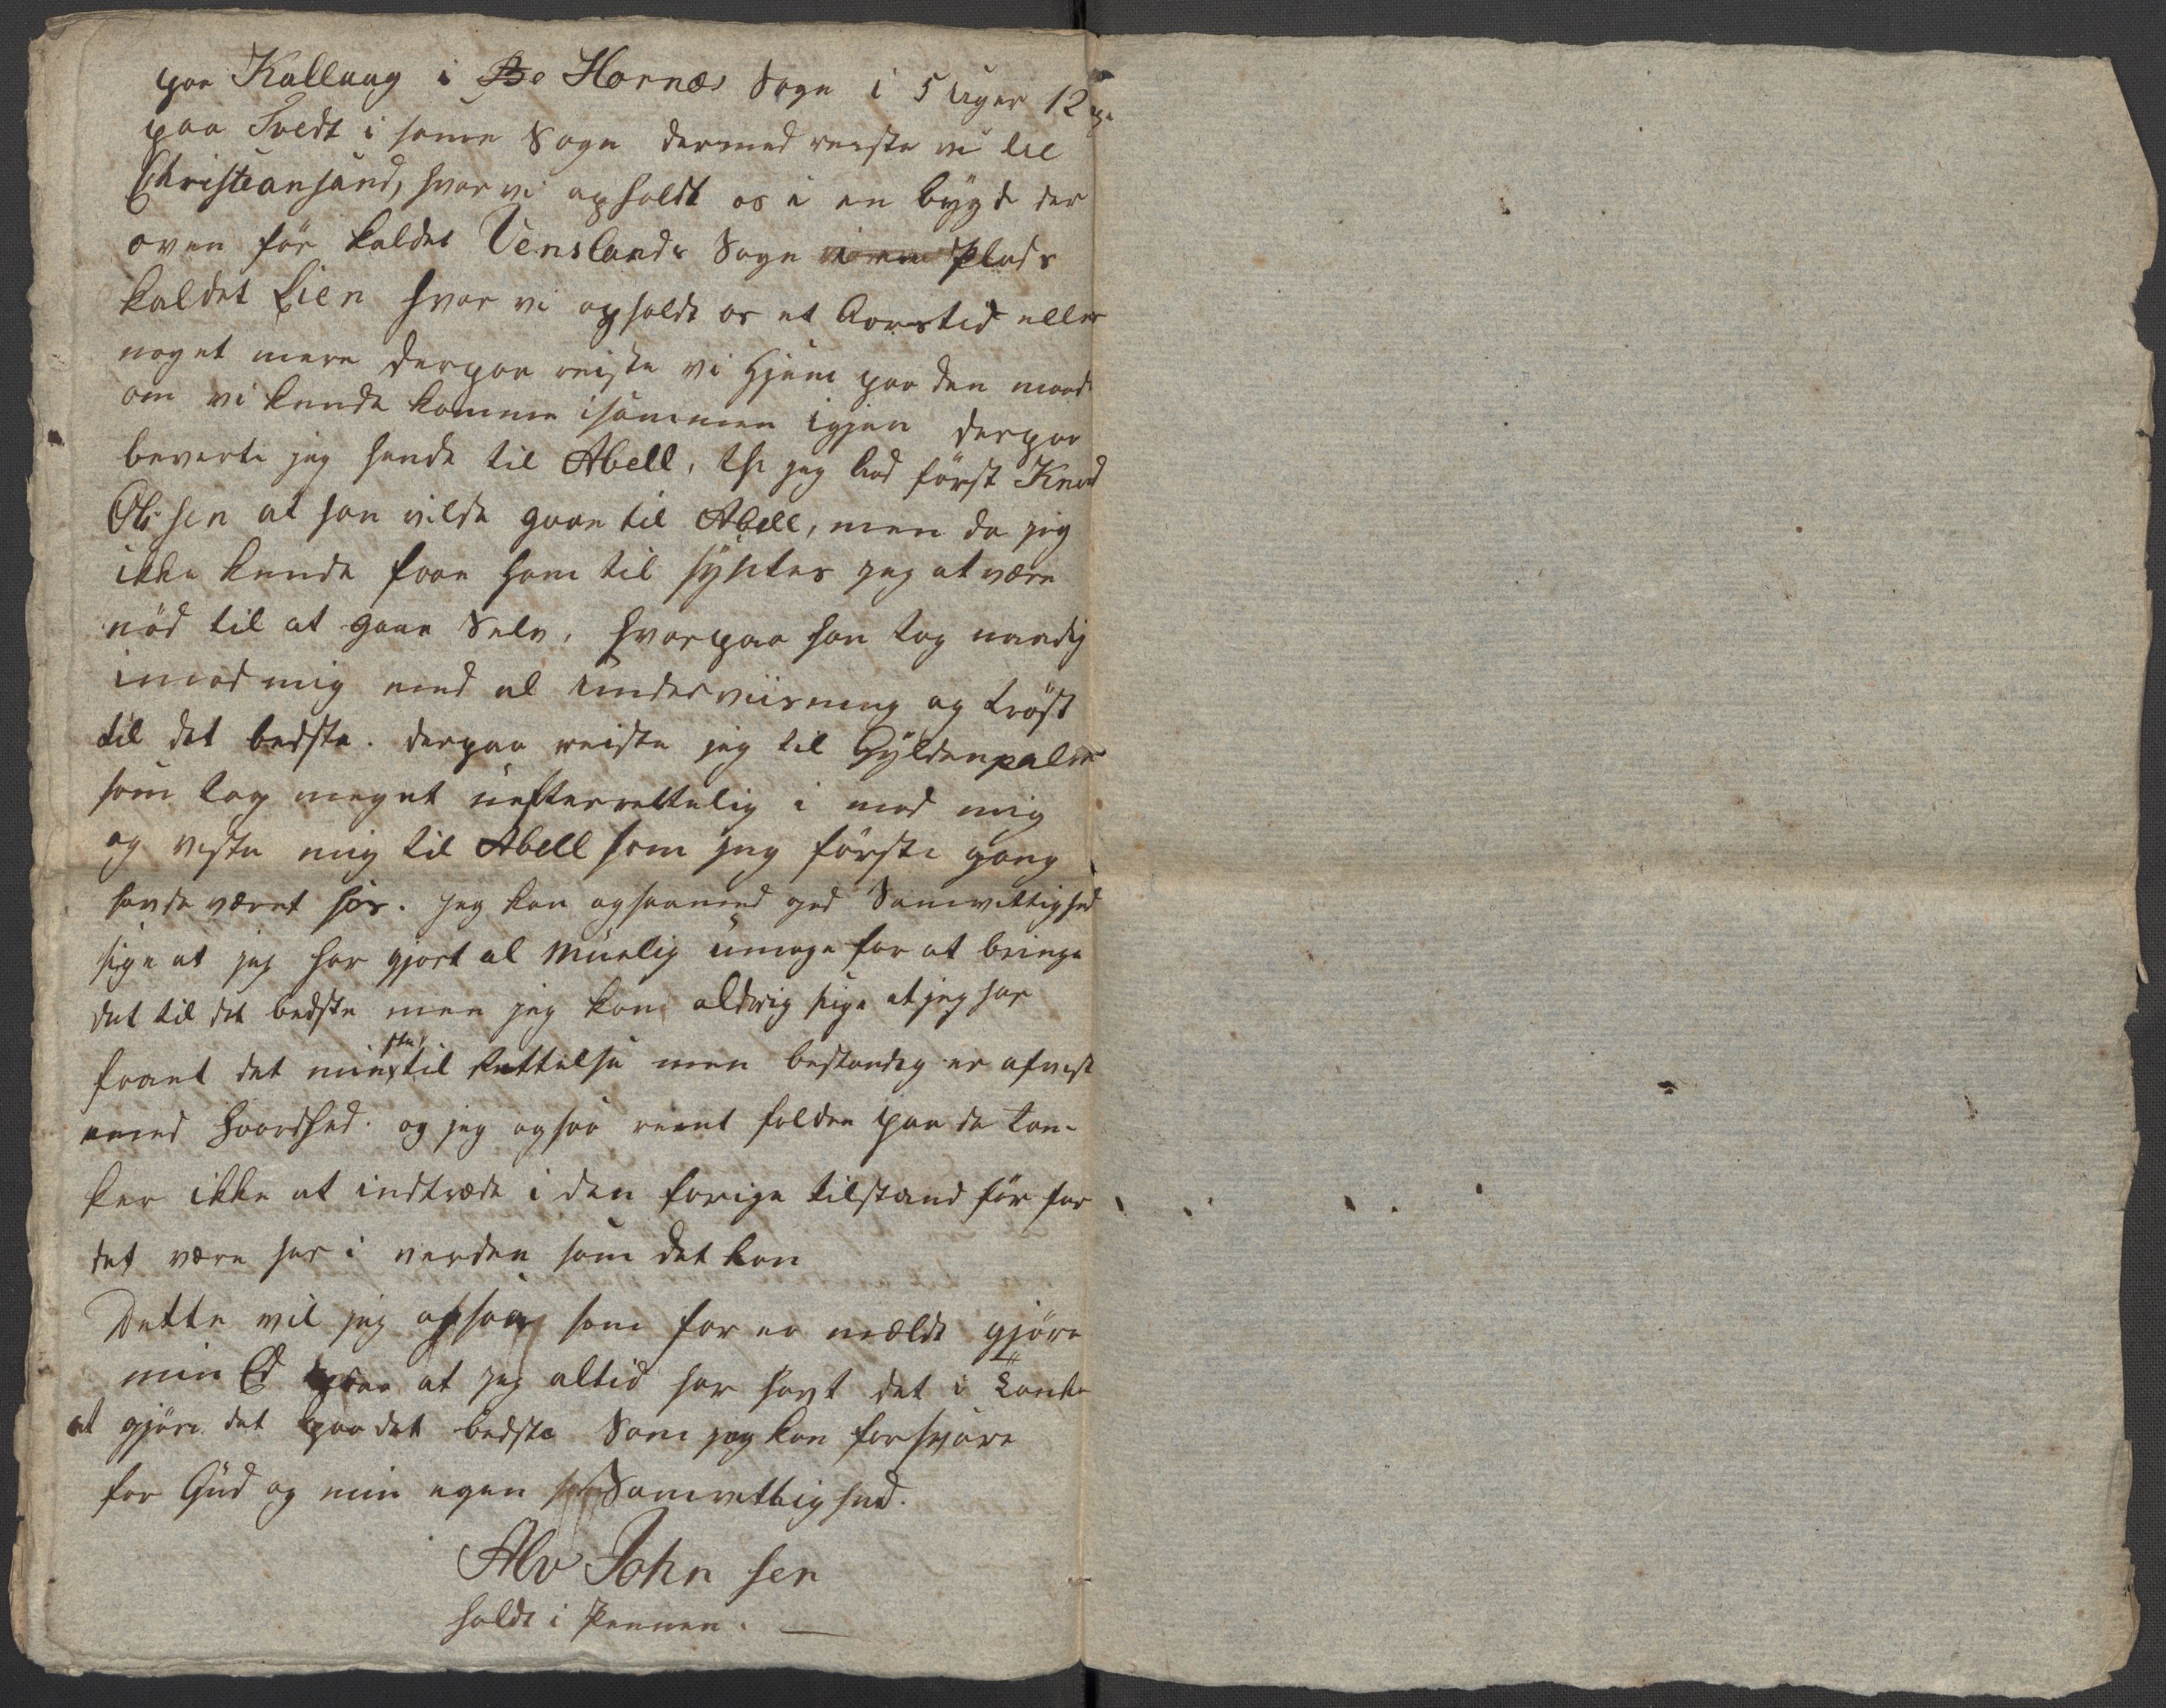 paa Kallaag i Hornæs Sogn i 5 Uger 12 ug:
paa Tvedt i samme Sogn dermed reiste vi til
Christiansand, hvor vi opholdt os i en bygd der
oven for kaldet Venslands Sogn i en Plads
kaldet Lien hvor vi opholdt os et Aarstid eller
noget mere derpaa reiste vi Hjem paa den maade
om vi kunde komme isammen igjen derpaa
beverte jeg hende til Abell, thi jeg bad först Knud
Olsen at han vilde gaae til Abell, men da jeg
ikke kunde faae ham til syntes jeg at være
nöd til at gaae Selv, hvorpaa han tog naadig
imod mig med al underviisning og tröst
til det bedste. derpaa reiste jeg til Gyldenpalm
som tog meget uefterrettelig i mod mig
og viste mig til Abell som jeg förste gang
havde været hos. jeg kan ogsaa med god Samvittighed
sige at jeg har gjort al Muelig umage for at bringe
det til det bedste men jeg kan aldrig sige at jeg har
faaet det minste til Rettelse men bestandig er afvist
med Haardhed. og jeg ogsaa reent falden paa de tan-
ker ikke at indtræde i den forige tilstand för har
det være her i verden som det kan
Dette vil jeg ogsaa som for er mældt gjöre
min Ed paa at jeg altid har havt det i Tanke
at gjöre det paa det bedste Som jeg kan forsvare
for Gud og min egen Samvittighed.
Alv Johnsen
holdt i Pennen. —